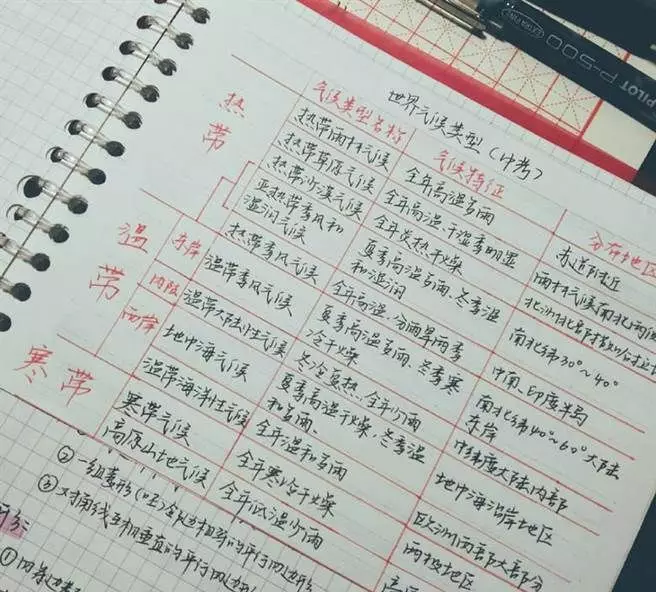 世界气候类型(中考)
气候类型名称 气候特征 分布地区
热带
热带雨林气候 全年高温多雨 赤道附近
热带草原气候 全年高温、干湿季明显 雨林气候南北两侧
热带沙漠气候 全年炎热干燥
亚热带季风和 夏季高温多雨、冬季温 南北纬30°~40°
湿润气候 和湿润
热带季风气候 全年高温、分雨旱两季 中南、印度半岛
温带
东岸 温带季风气候 夏季高温多雨、冬季寒 南北纬40°~60°大陆
冷干燥 东岸
内陆 温带大陆性气候 冬冷夏热、全年少雨 中纬度大陆内部
西岸 地中海气候 夏季高温干燥、冬季温 地中海沿岸地区
和多雨、
温带海洋性气候 全年温和多雨 欧洲西部大部分
寒带
寒带气候 全年寒冷干燥 两极地区
高原山地气候 全年低温少雨
② 一组 邻边相等的平行四边形
③ 对角线互相垂直的平行四边形
① 四条边
PILOT P-500
EXTRA FINE